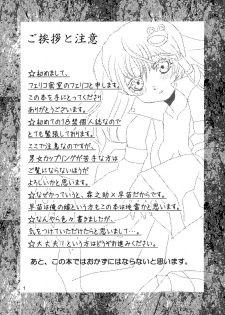 ご挨拶と注意
☆初めまして、
フェリコ密室のフェリコと申します。
この本を手にとってくださり
ありがとうございます。
☆初めての18禁個人誌なので
とても緊張しております。
ここで注意なのですが、
男☆カップリングが苦手な方は
ご覧にならないほうが
よろしいかと思います。
☆なぜかっていうと、霖之助×早苗だからです。
早苗は俺の嫁という方もこの本は地雷かと思います。
☆なんやら色々書きましたが、
気をつけていただけたらと思いまして…。
☆大丈夫!!という方はどうぞお進みください。
あと、この本ではおかずにはならないと思います。